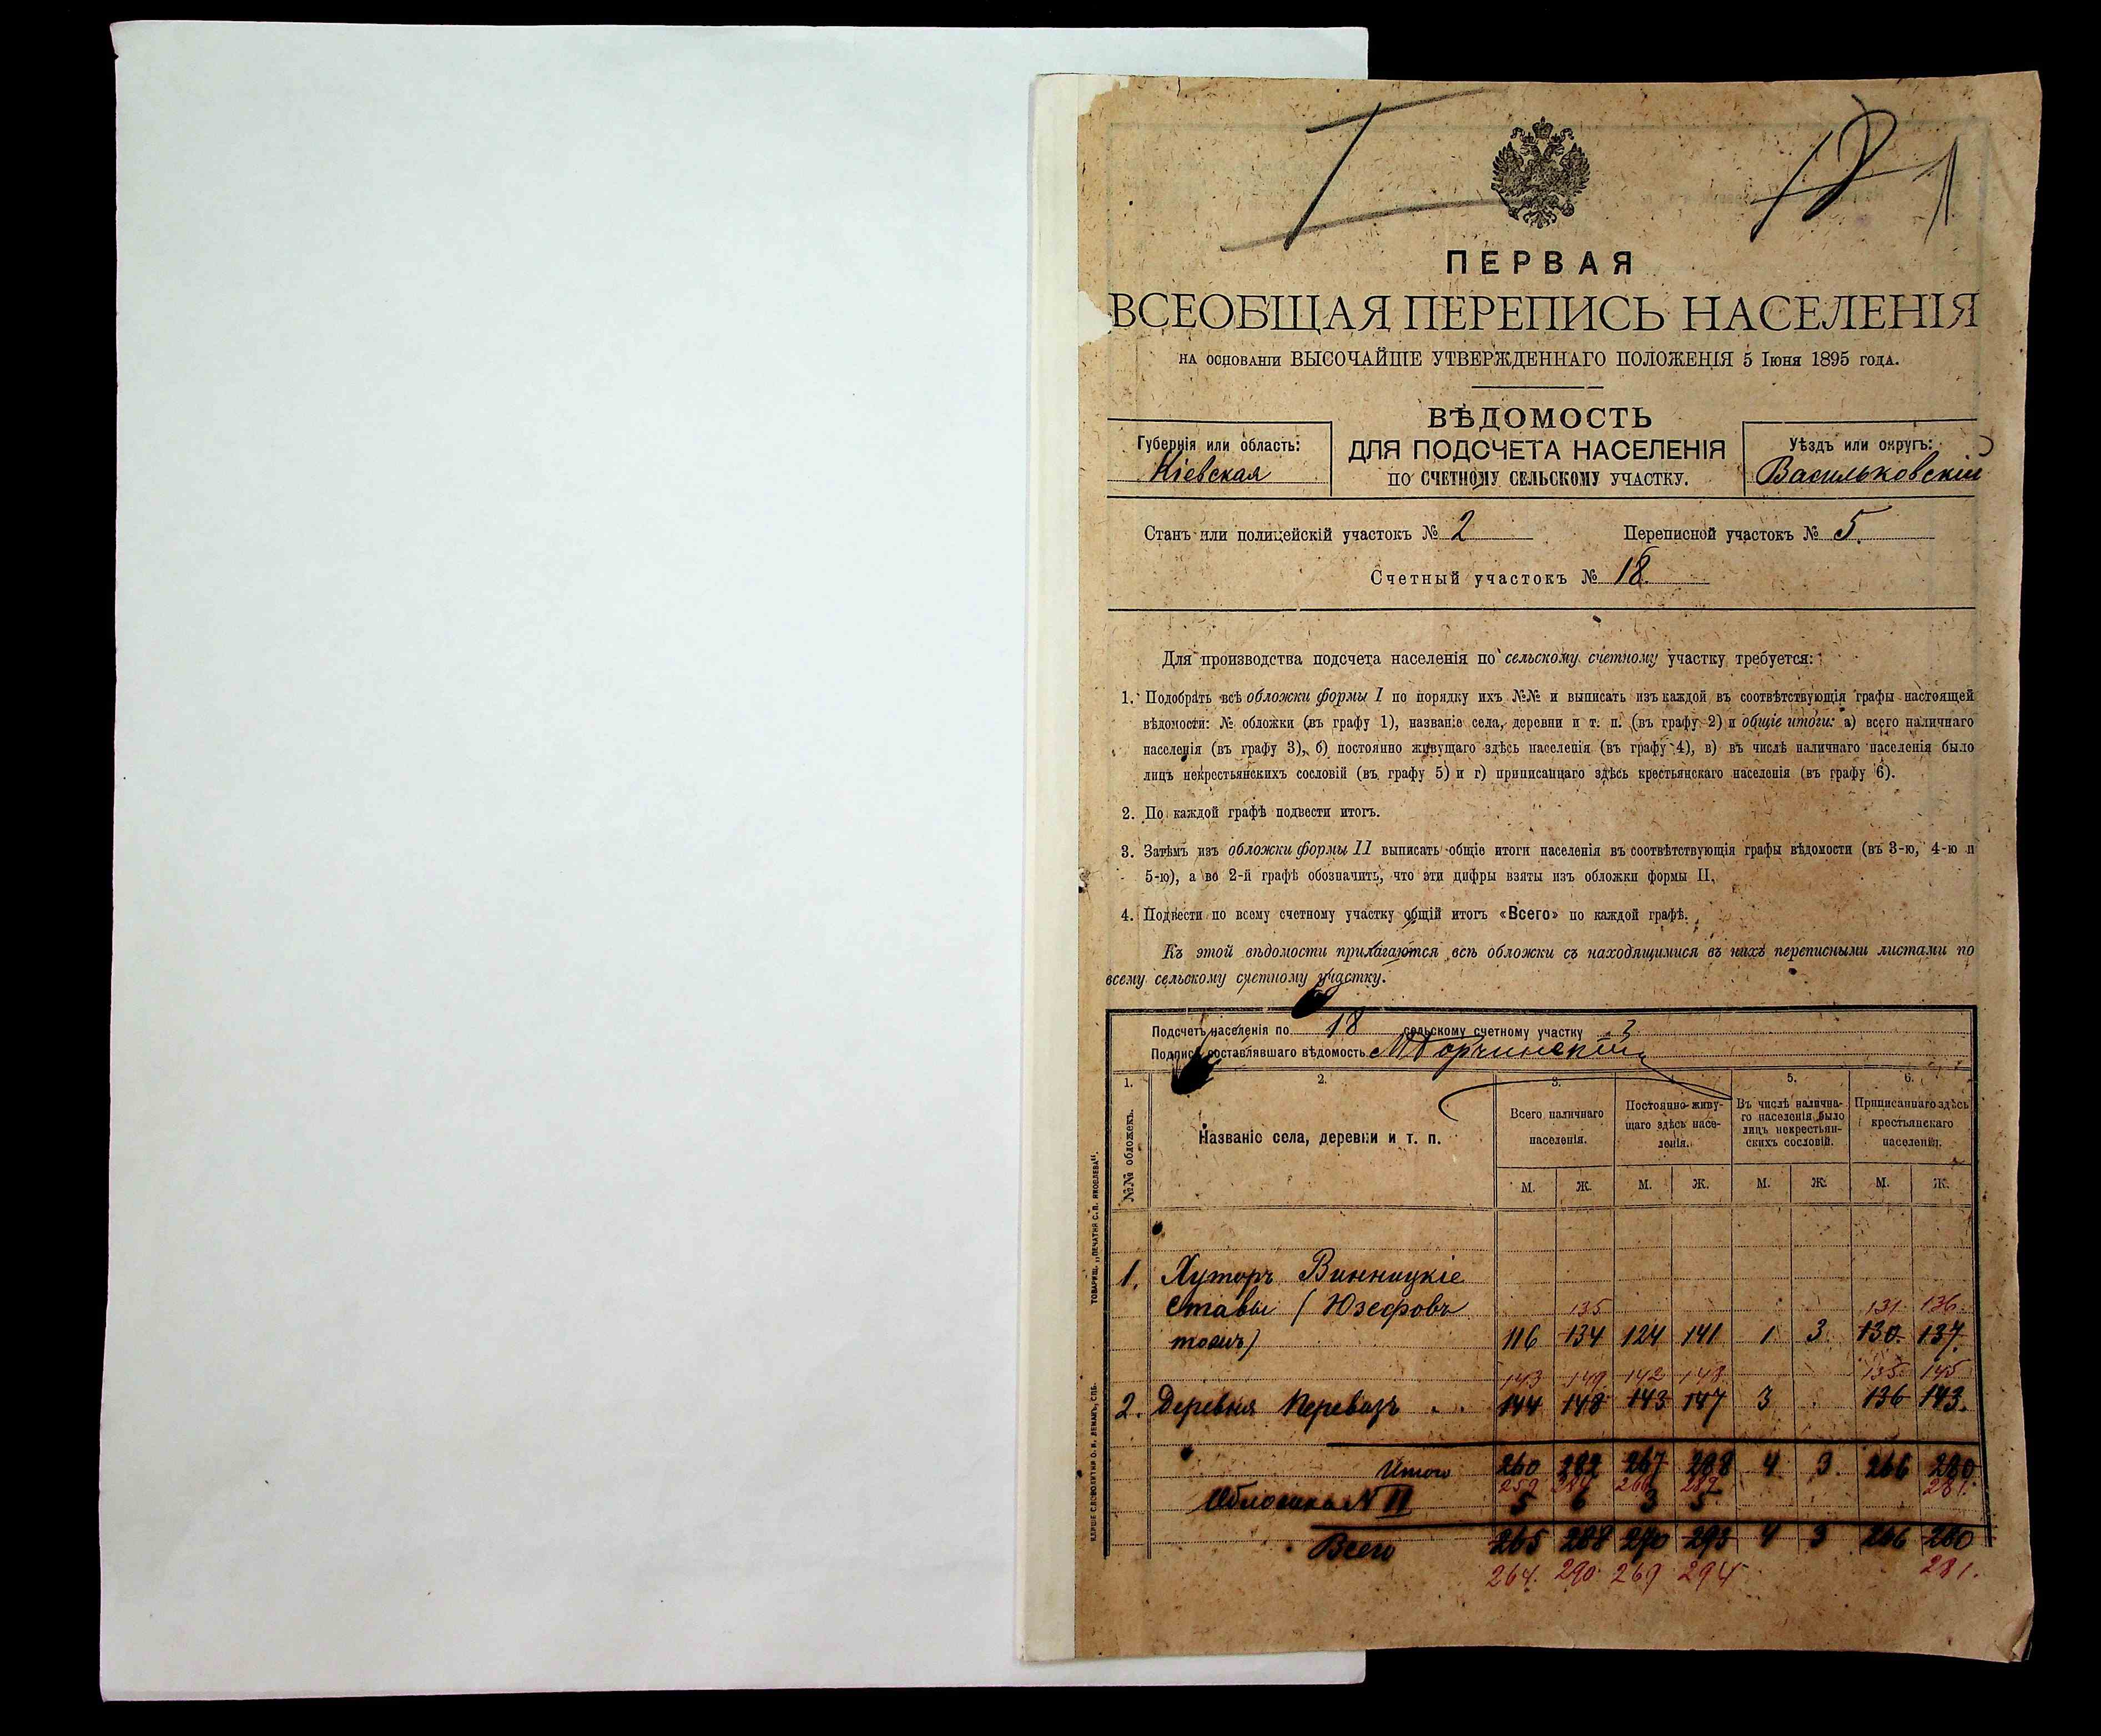 I
18
1
ПЕРВАЯ
ВСЕОБЩАЯ ПЕРЕПИСЬ НАСЕЛЕНІЯ
НА ОСНОВАНІИ ВЫСОЧАЙШЕ УТВЕРЖДЕННАГО ПОЛОЖЕНІЯ 5 Іюня 1895 ГОДА.
ВѢДОМОСТЬ
ДЛЯ ПОДСЧЕТА НАСЕЛЕНІЯ
ПО СЧЕТНОМУ СЕЛЬСКОМУ УЧАСТКУ.
Губернія или область:
Кіевская
Уѣздъ или округъ:
Васильковскій
Станъ или полицейскій участокъ № 2
Переписной участокъ № 5.
Счетный участокъ № 18.
Для производства подсчета населенія по сельскому счетному участку требуется:
1. Подобрать всѣ обложки формы I по порядку ихъ №№ и выписать изъ каждой въ соотвѣтствующія графы настоящей
вѣдомости: № обложки (въ графу 1), названіе села, деревни и т. п. (въ графу 2) и общіе итоги: а) всего наличнаго
населенія (въ графу 3), б) постоянно живущаго здѣсь населенія (въ графу 4), в) въ числѣ наличнаго населенія было
лицъ некрестьянскихъ сословій (въ графу 5) и г) приписаннаго здѣсь крестьянскаго населенія (въ графу 6).
2. По каждой графѣ подвести итогъ.
3. Затѣмъ изъ обложки формы II выписать общіе итоги населенія въ соотвѣтствующія графы вѣдомости (въ 3-ю, 4-ю и
5-ю), а во 2-й графѣ обозначить, что эти цифры взяты изъ обложки формы II.
4. Подвести по всему счетному участку общій итогъ «Всего» по каждой графѣ.
Къ этой вѣдомости прилагаются всѣ обложки съ находящимися въ нихъ переписными листами по
всему сельскому счетному участку.
Подсчетъ населенія по 18 сельскому счетному участку
Подпись составлявшаго вѣдомость
1. 2. 3. 5. 6.
№№ обложекъ.
Названіе села, деревни и т. п.
Всего наличнаго населенія.
Постоянно живущаго здѣсь населенія.
Въ числѣ наличнаго населенія было лицъ некрестьянскихъ сословій.
Приписаннаго здѣсь крестьянскаго населенія.
М. Ж. М. Ж. М. Ж. М. Ж.
1. Хуторъ Винницкіе
Ставы (Юзефовъ
135 131 136
токъ) 116 134 124 141 1 3 130 137
143 149 142 148 135 145
2. Деревня Перевозъ . . 144 148 143 147 3 136 143.
Итого 260 282 267 288 4 3. 266 280
259 284 266 289 281.
Обложка № II 5 6 3 5
Всего 265 288 270 293 4 3 266 280
264. 290 269 294 281.
ТОВАРИЩ. „ПЕЧАТНЯ С. П. ЯКОВЛЕВА“.